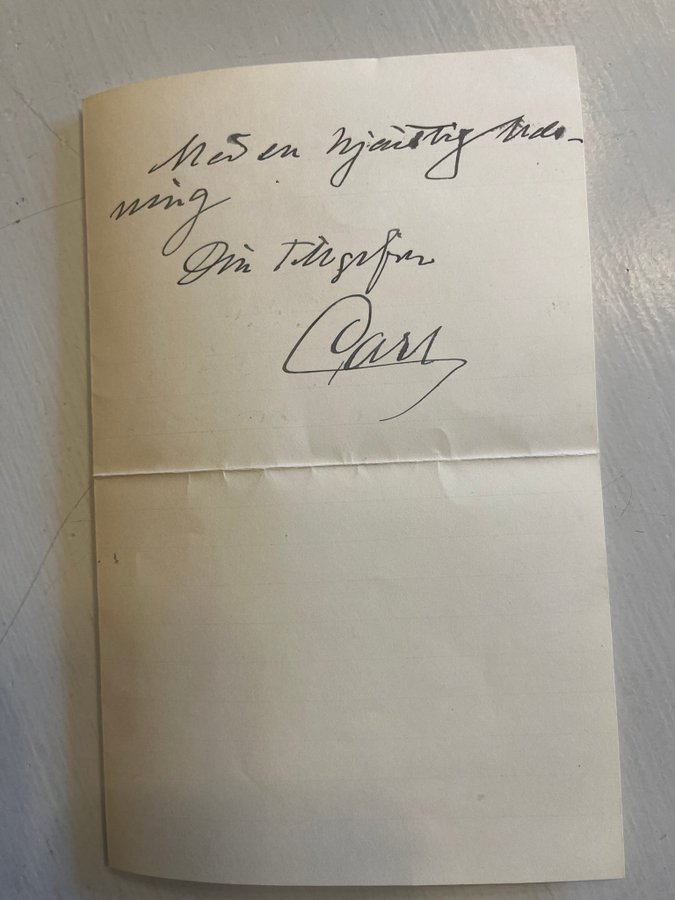 Med en hjärtlig
ning
Din tillgifne
Carl